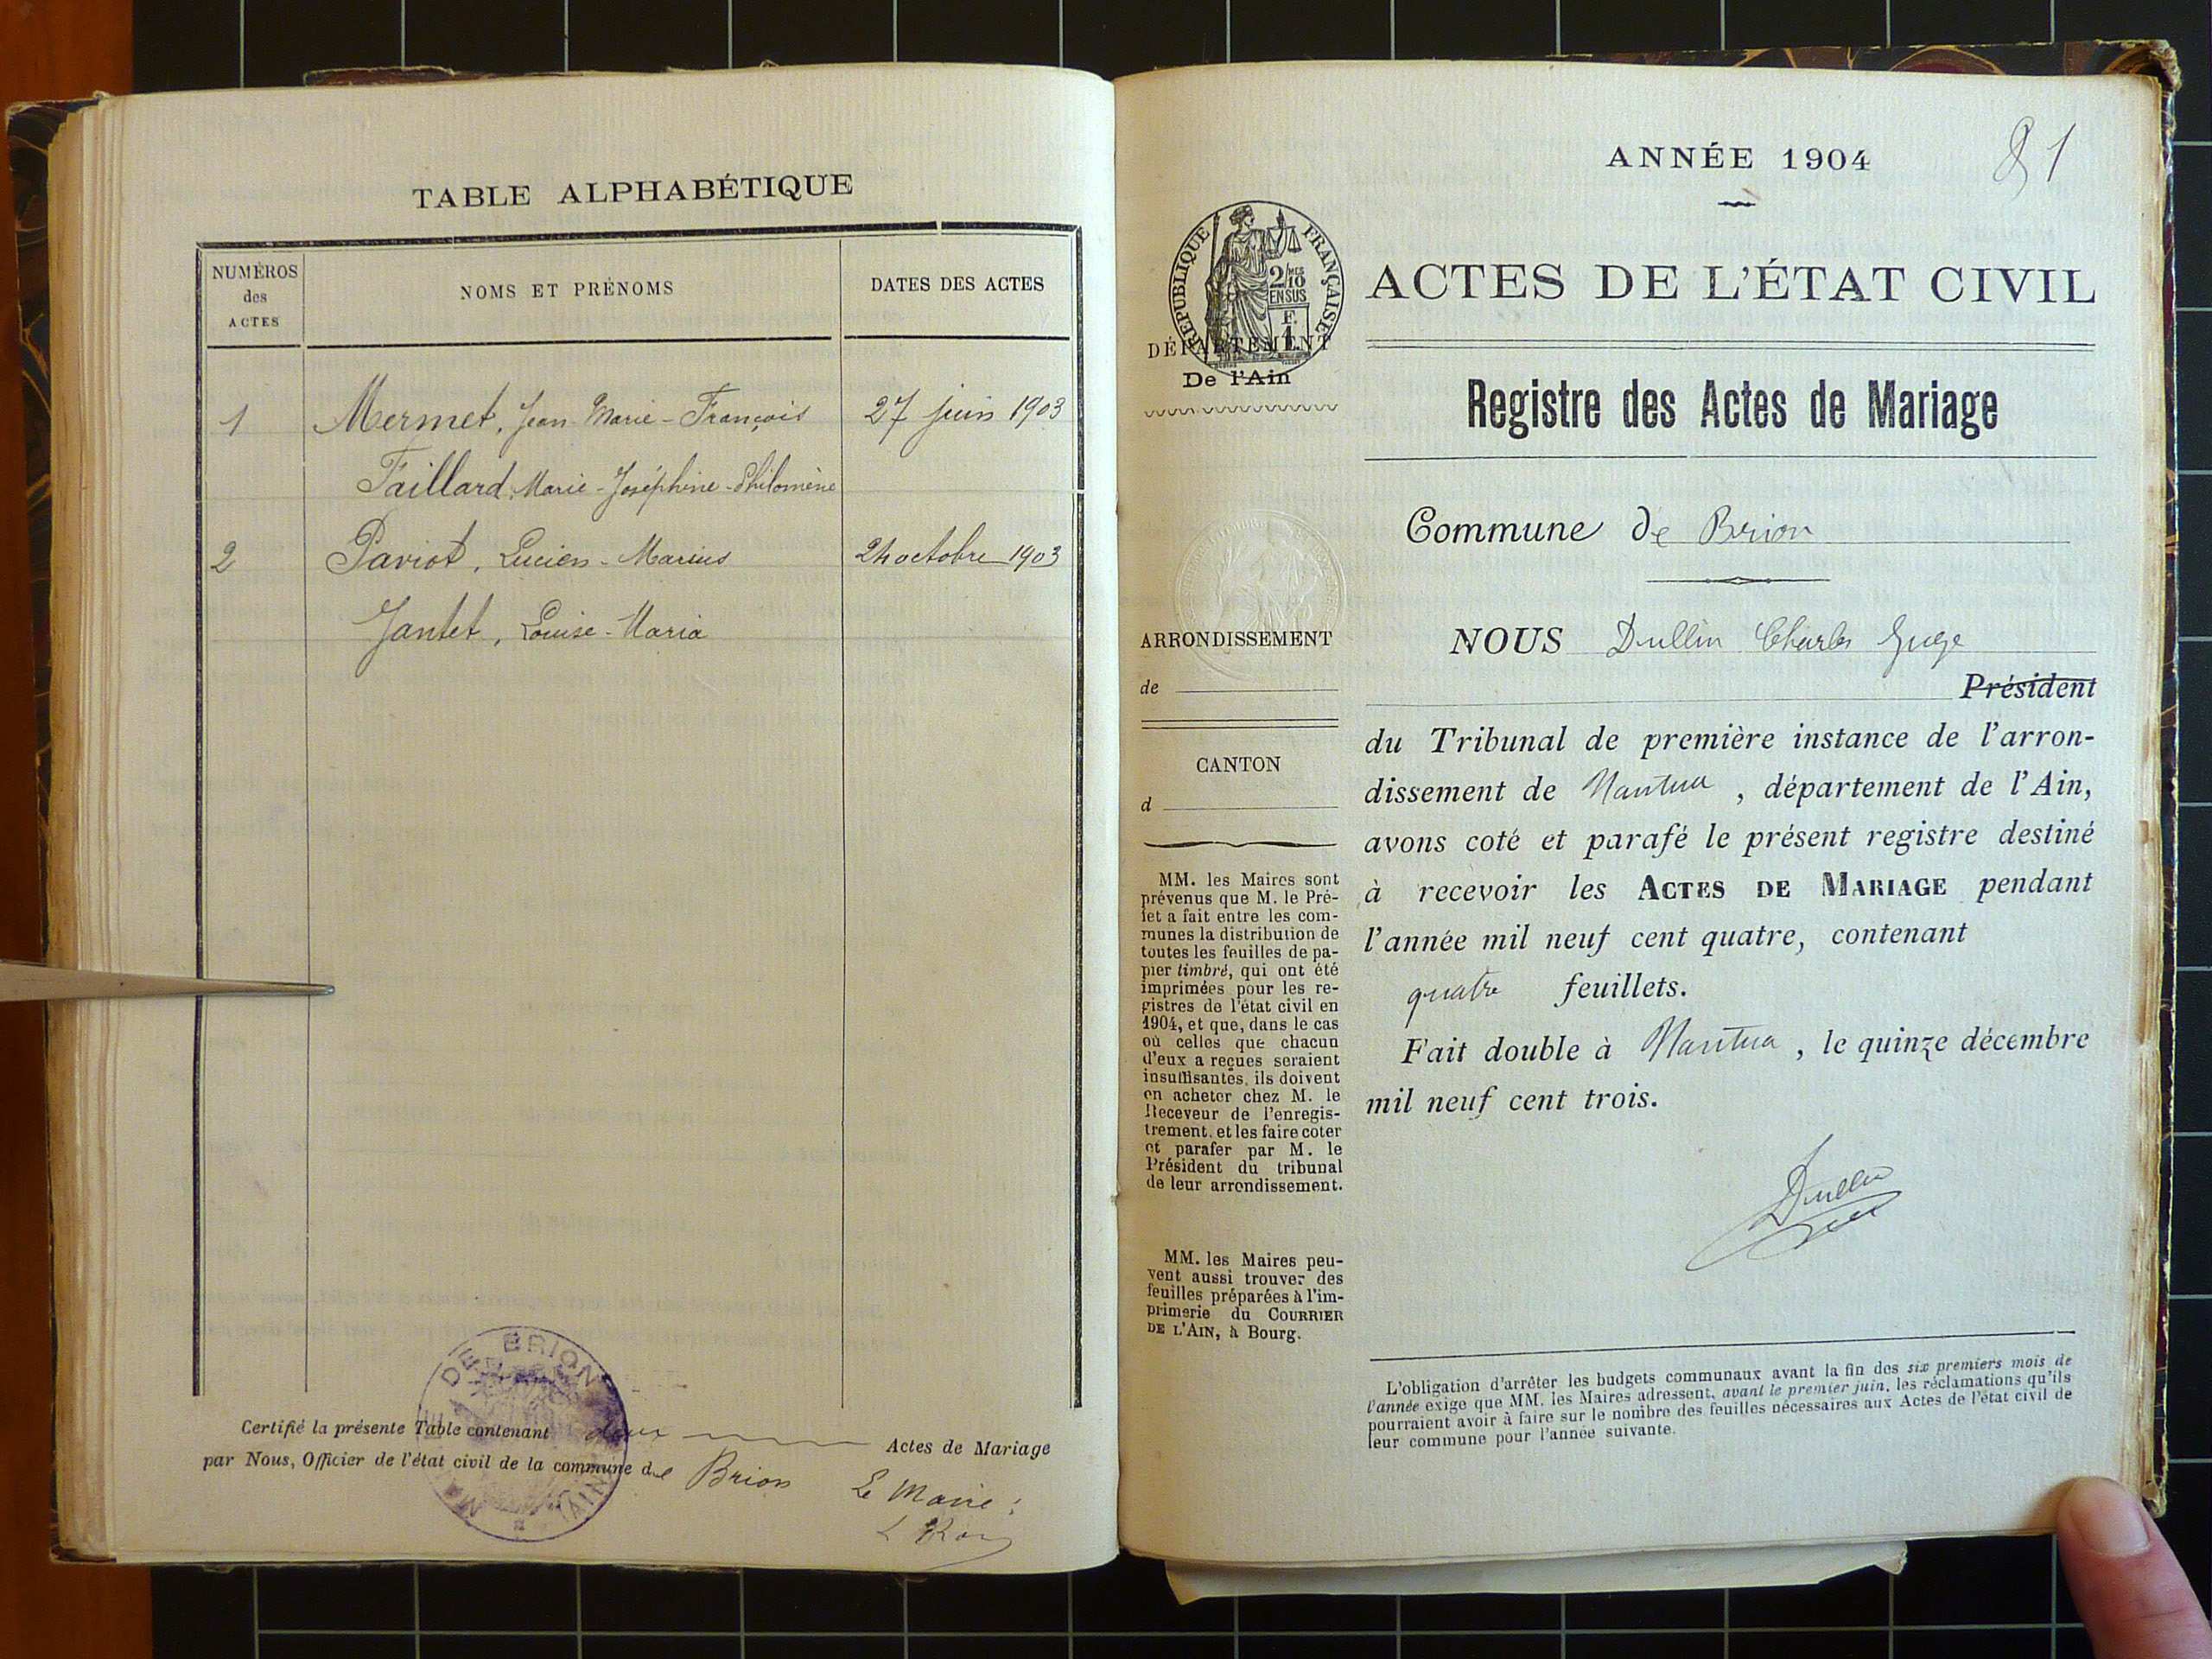 TABLE ALPHABÉTIQUE
NUMÉROS
des
ACTES
NOMS ET PRÉNOMS
DATES DES ACTES
1 Mermet, Jean Marie-François 27 juin 1903
Faillard, Marie-Joséphine-Philomène
2 Paviot, Lucien-Marius 24 octobre 1903
Jantet, Louise-Maria
DE BRION
(AIN)
Certifié la présente Table contenant deux Actes de Mariage
par Nous, Officier de l'état civil de la commune de Brion
Le Maire:
ANNÉE 1904
81
RÉPUBLIQUE FRANÇAISE
2/10 MES
EN SUS
F.
1
DÉPARTEMENT
De l'Ain
ARRONDISSEMENT
de
CANTON
d
MM. les Maires sont
prévenus que M. le Pré-
fet a fait entre les com-
munes la distribution de
toutes les feuilles de pa-
pier timbré, qui ont été
imprimées pour les re-
gistres de l'état civil en
1904, et que, dans le cas
où celles que chacun
d'eux a reçues seraient
insuffisantes, ils doivent
en acheter chez M. le
Receveur de l'enregis-
trement, et les faire coter
et parafer par M. le
Président du tribunal
de leur arrondissement.
MM. les Maires peu-
vent aussi trouver des
feuilles préparées à l'im-
primerie du COURRIER
DE L'AIN, à Bourg.
ACTES DE L'ÉTAT CIVIL
Registre des Actes de Mariage
Commune de Brion
NOUS Dullin Charles Juge
Président
du Tribunal de première instance de l'arron-
dissement de Nantua, département de l'Ain,
avons coté et parafé le présent registre destiné
à recevoir les ACTES DE MARIAGE pendant
l'année mil neuf cent quatre, contenant
quatre feuillets.
Fait double à Nantua, le quinze décembre
mil neuf cent trois.
Dullin
L'obligation d'arrêter les budgets communaux avant la fin des six premiers mois de
l'année exige que MM. les Maires adressent, avant le premier juin, les réclamations qu'ils
pourraient avoir à faire sur le nombre des feuilles nécessaires aux Actes de l'état civil de
leur commune pour l'année suivante.